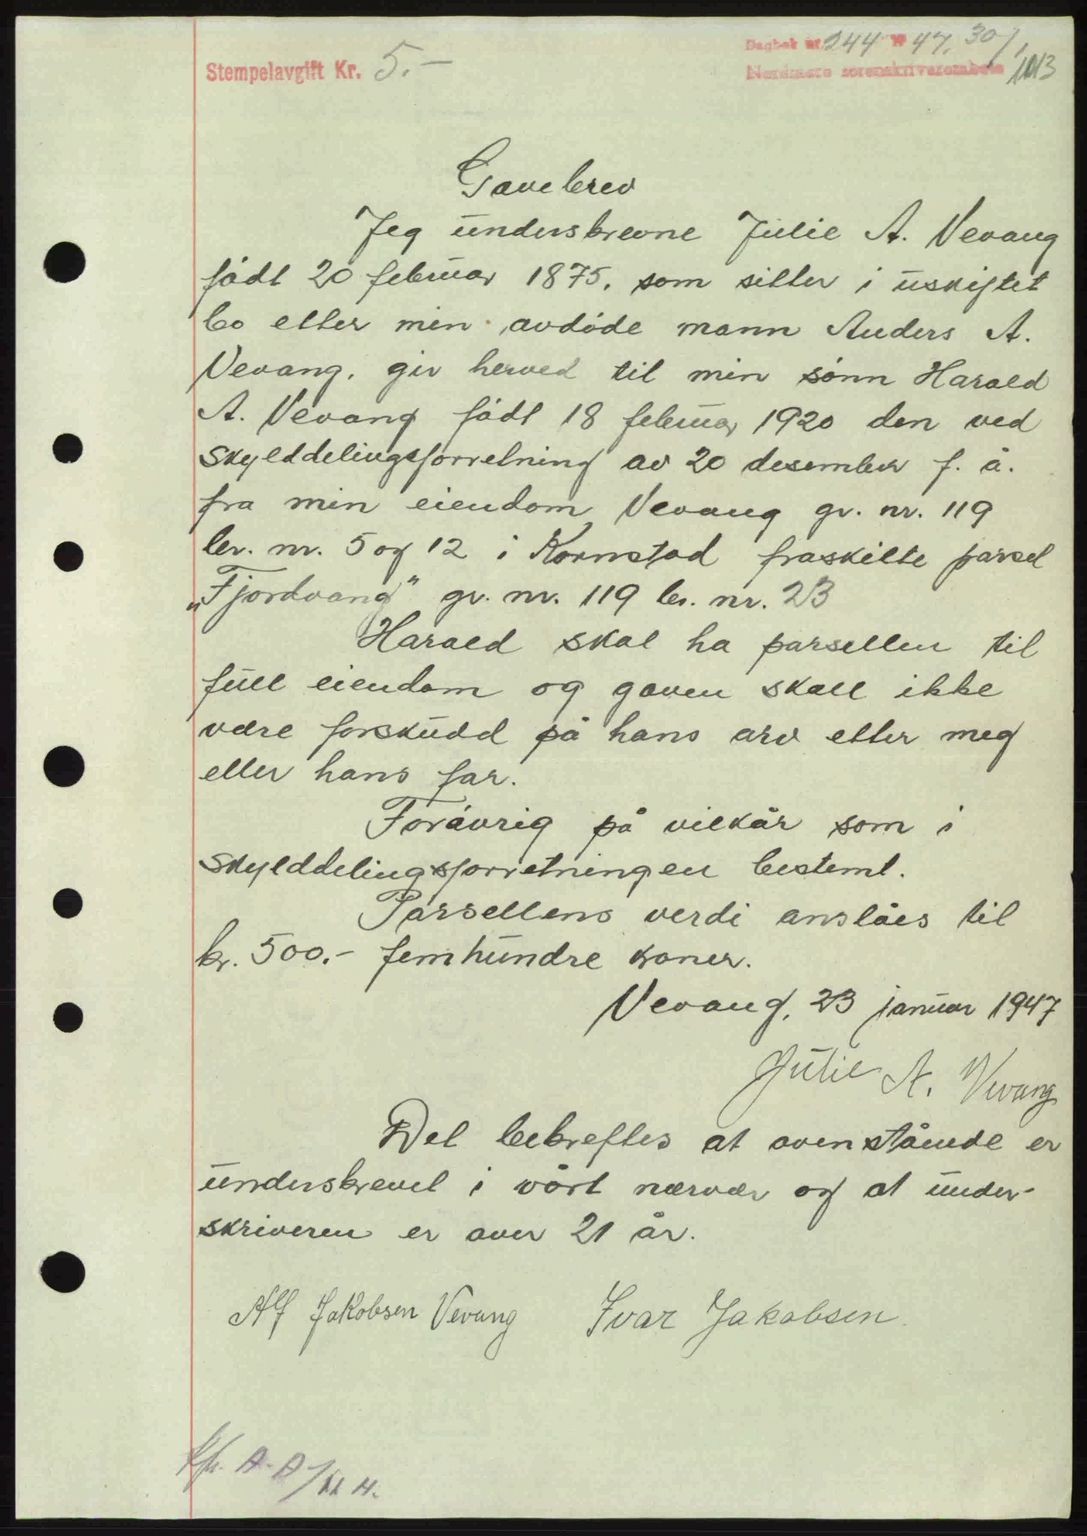 Stempelavgift Kr. 5.-
Dagbok nr. 244 19 47, 30/1
Nordmøre sorenskriverembete
Gavebrev
Jeg underskrevne Julie A. Vevang
født 20 februar 1875, som sitter i uskiftet
bo etter min avdøde mann Anders A.
Vevang, giv herved til min sønn Harald
A. Vevang født 18 februar 1920 den ved
skylddelingsforretning av 20 desember f. å.
fra min eiendom Vevang gr. nr. 119
br. nr. 5 og 12 i Kornstad fraskilte parsel
„Fjordvang" gr. nr. 119 br. nr. 23
Harald skal ha parsellen til
full eiendom og gaven skall ikke
være forskudd på hans arv etter meg
eller hans far.
Forøvrig på vilkår som i
skylddelingsforretningen bestemt.
Parsellens verdi anslåes til
kr. 500.- femhundre kroner.
Vevang, 23 januar 1947
Julie A. Vevang
Det bekreftes at ovenstående er
underskrevet i vårt nærvær og at under-
skriveren er over 21 år.
Alf Jakobsen Vevang Ivar Jakobsen.